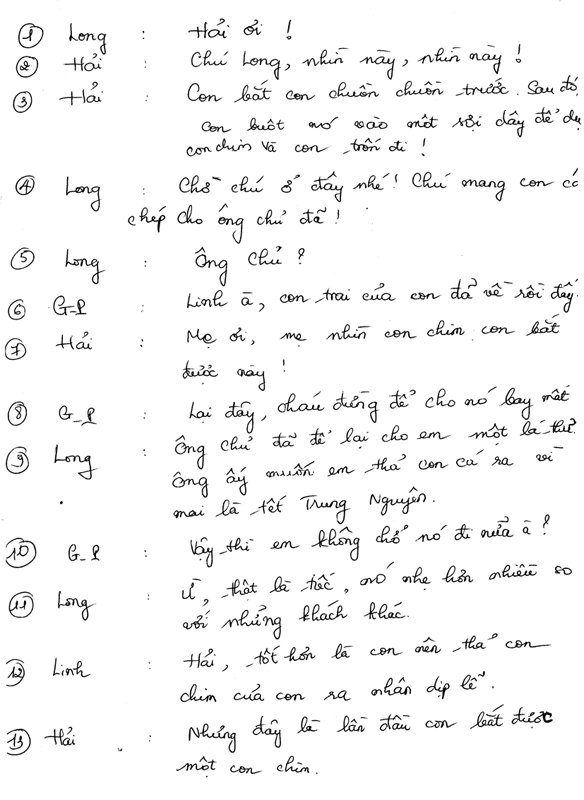 ① Long : Hải ơi !
② Hải : Chú Long, nhìn này, nhìn này !
③ Hải : Con bắt con chuồn chuồn trước. Sau đó,
con buột nó vào một sợi dây để dụ
con chim và con trốn đi !
④ Long : Chờ chú ở đây nhé! Chú mang con cá
chép cho ông chủ đã !
⑤ Long : Ông chủ ?
⑥ G-P : Linh à, con trai của con đã về rồi đây
⑦ Hải : Mẹ ơi, mẹ nhìn con chim con bắt
được này !
⑧ G-P : Lại đây, cháu đừng để cho nó bay mất
⑨ Long : Ông chủ đã để lại cho em một lá thư
ông ấy muốn em thả con cá ra vì
mai là tết Trung Nguyên.
⑩ G-P : Vậy thì em không chở nó đi nữa à ?
⑪ Long : Ừ, thật là tiếc, nó nhẹ hơn nhiều so
với những khách khác.
⑫ Linh : Hải, tốt hơn là con nên thả con
chim của con ra nhân dịp lễ.
⑬ Hải : Nhưng đây là lần đầu con bắt được
một con chim.